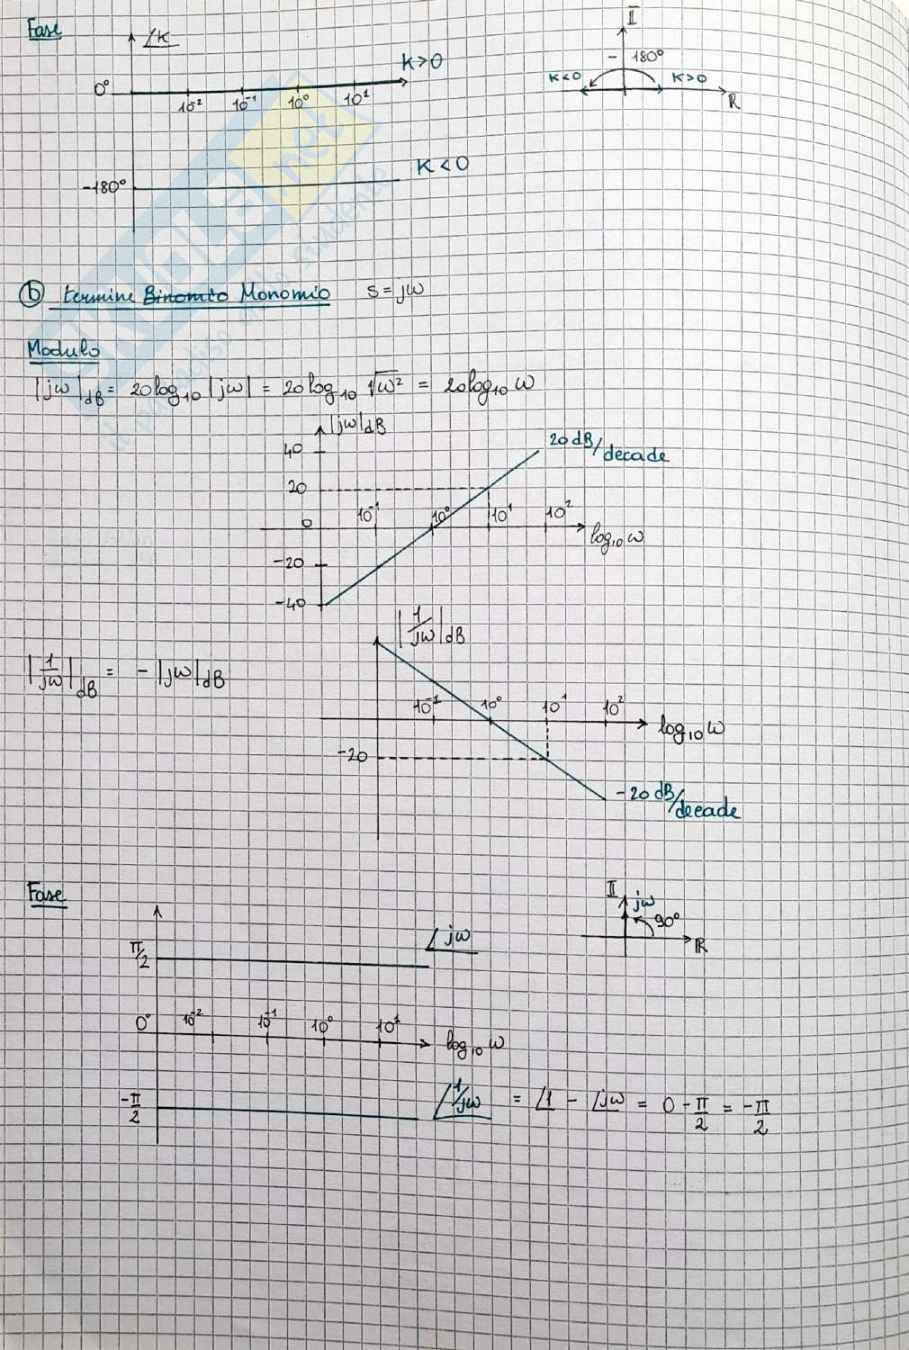 Fase
∠K
K>0
0°
10⁻² 10⁻¹ 10⁰ 10¹
K<0
-180°
II
-180°
K<0 K>0
R
ⓑ termine Binomio Monomio s=jω
Modulo
|jω|dB = 20log₁₀|jω| = 20log₁₀ √ω² = 20log₁₀ω
|jω|dB
40
20
0
-20
-40
10⁻¹ 10⁰ 10¹ 10²
log₁₀ω
20 dB/decade
|1/jω|dB = - |jω|dB
|1/jω|dB
10⁻¹ 10⁰ 10¹ 10²
log₁₀ω
-20
-20 dB/decade
Fase
II
jω
90°
R
π/2
∠jω
0°
10⁻² 10⁻¹ 10⁰ 10¹
log₁₀ω
-π/2
∠1/jω = ∠1 - ∠jω = 0 - π/2 = -π/2
SKUOLA.net